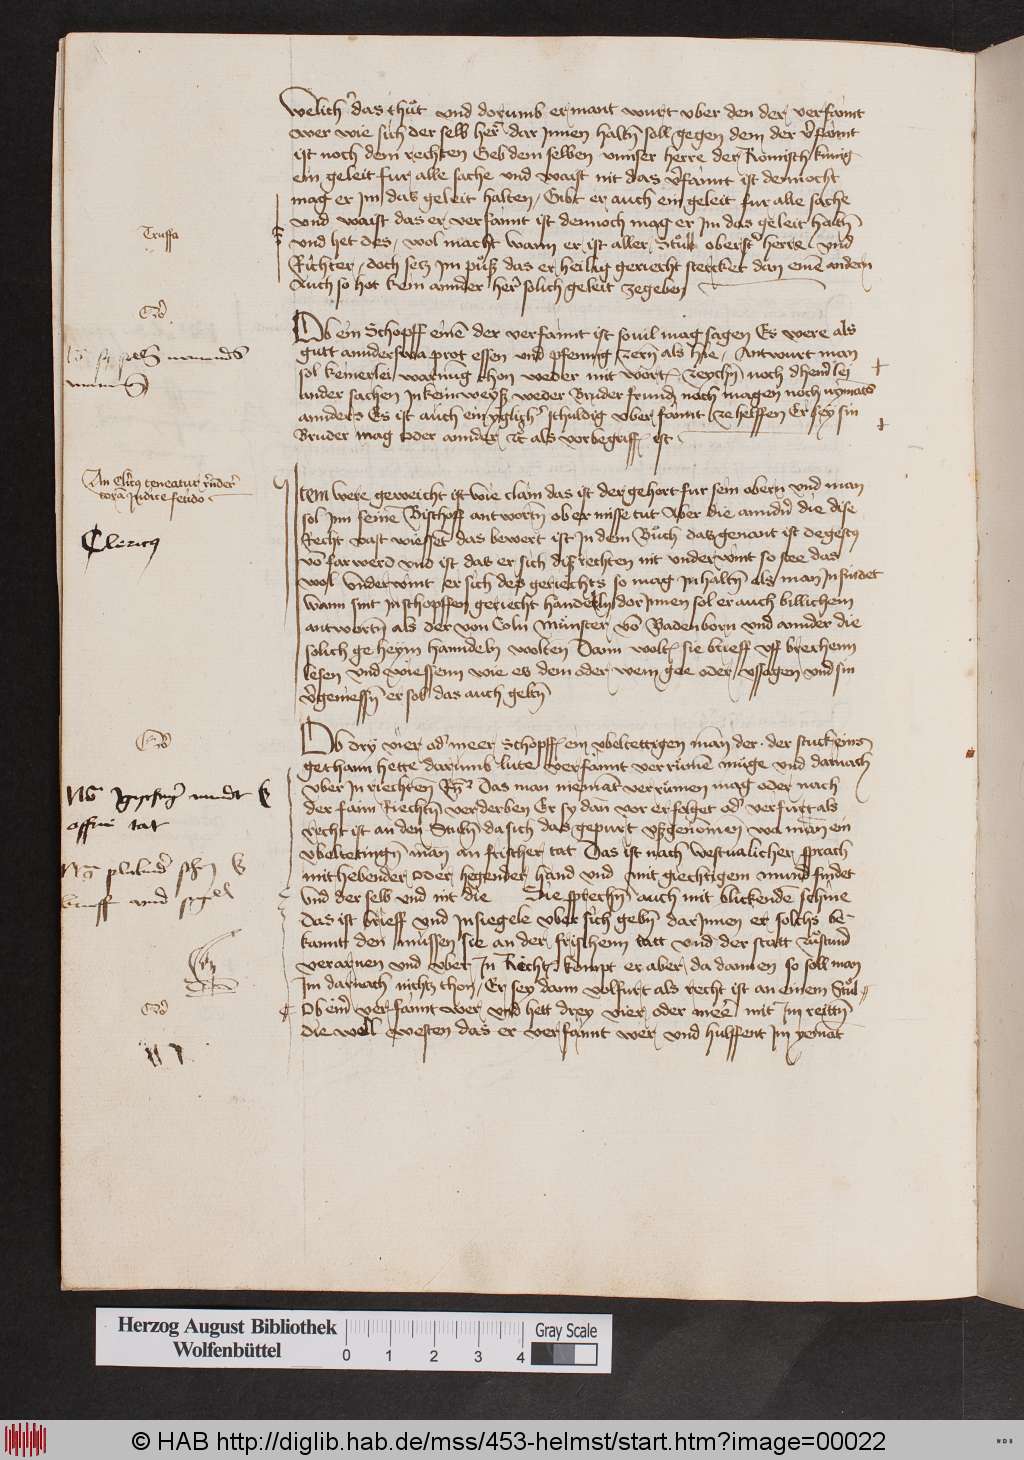 Welich̕ das thůt vnd dorumb ermant wurt vber den der verfamt
wer wie sich der selb her dar Innen haltn̄ soll gegen dem der v̕famt
ist noch dem rechten Geb dem selben vnnser herre der Römisch künig
ein geleit fur alle sache vnd waist nit das v̕famt ist dennocht
mag er Im das geleit halten / Gibt er auch ein geleit fur alle sache
vnd waist das er verfamt ist dennoch mag er Im das geleit haltn̄
Truffa
vnd het des / wol macht wann er ist aller Stůl oberst̕ herre vnd
Richter / doch setz Im půß das er heilig geriecht stercket dan einē andern
Auch so hot kein annder her̕ solich geleit zegeben
Ob ein Schopff einē der verfamt ist souil mag sagen Es were als
gutt annderswa prot essen vnd pfennig zern als hie / Antwurt man
sol keinerlei warnug thon weder mit wort zeychn̄ noch dheinerlei
ander sachen In kein weyß weder Bruder frund noch magen noch nymats
annders Es ist auch ein yglich̕ schuldig vber famt ze helffen Er sey sin
Bruder mag oder annder als vorbegriff ist
An cl̄icus teneatur
coram Iudice feudo
Clericus
Item were geweicht ist wie clain das ist der gehort fur sein obern vnd man
sol Im seinē Bischoff antwortn̄ ob er misse tut Aber die annd̕n die dise
Recht vast wiesset das bewert ist In dem Bůch das genant ist degestus
vō far werd vnd ist das er sich diß rechten nit vnderwint so stee das
wol vnderwint er sich des geriechts so mag In haltn̄ als man In findet
Wann sint In schopffen geriecht handeln dor Innen sol er auch billichem
antwortn̄ als der von Coln Munster vō Badenborn vnd annder die
solich geheym hanndeln wolten Dann wolt sie brieff vff brechenn
lesen vnd wiessenn wie es dem oder wem gee oder vssagen vnd sin
v̕geniessn̄ er sol das auch geltn̄
Ob dry vier od̕ meer Schopff ein vbeltettigen man der der stuck eins
gethann hette dorumb lute verfamt verrumē můge vnd darnach
vber In riechten Das man niemāt verrůmen mag oder nach
der faim Riechtn̄ verderben Er sy dan vor erfolget od̕ verfurt als
recht ist an den Stuln̄ da sich das gepurt vßgenomen wa man ein
vbeltetingn̄ man an frischer tat Das ist nach westualicher sprach
mit hebender oder hegender hand vnd mit giechtigem mund findet
vnd der selb vnd nit die Die sprechn̄ auch mit blickendē schine
Das ist brieff vnd Insiegele vber sich gebn̄ dar Innen er solchs be-
kannt den můssen sie an der frischenn tatt vnd der statt zůstund
verarnen vnd vber In Recht kompt er aber da dannen so soll man
Im darnach nichtz thon / Er sey dann volfurt als recht ist an einem Stůl
Ob eim̕ verfamt wer vnd hett drey vier oder meē mit Im reittn̄
die woll westen das er verfamt wer vnd hulffent Im yemāt
Herzog August Bibliothek
Wolfenbüttel
0 1 2 3 4
Gray Scale
© HAB http://diglib.hab.de/mss/453-helmst/start.htm?image=00022